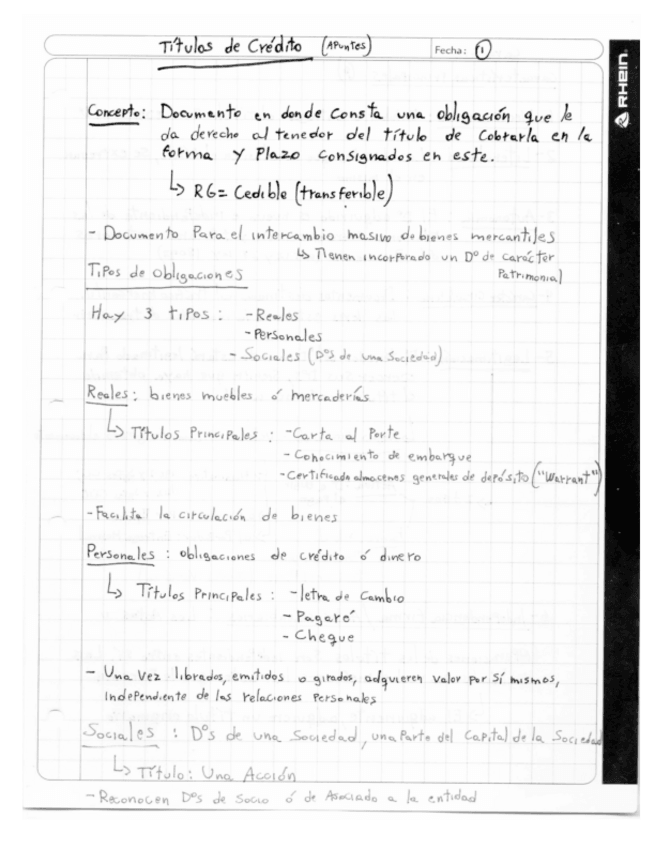 Títulos de Crédito (Apuntes)
Fecha: 1
RHEIN
Concepto: Documento en donde consta una obligación que le
da derecho al tenedor del título de cobrarla en la
forma y plazo consignados en este.
↳ RG= Cedible (transferible)
- Documento para el intercambio masivo de bienes mercantiles
↳ Tienen incorporado un Dº de carácter
Patrimonial
Tipos de obligaciones
Hay 3 tipos: - Reales
- Personales
- Sociales (Dºs de una Sociedad)
Reales: bienes muebles ó mercaderías
↳ Títulos Principales: - Carta al Porte
- Conocimiento de embarque
- Certificado almacenes generales de depósito ("Warrant")
- Facilita la circulación de bienes
Personales: obligaciones de crédito ó dinero
↳ Títulos Principales: - letra de Cambio
- Pagaré
- Cheque
- Una vez librados, emitidos o girados, adquieren valor por sí mismos,
independiente de las relaciones personales
Sociales: Dºs de una Sociedad, una parte del capital de la Sociedad
↳ Título: Una Acción
- Reconocen Dºs de Socio ó de Asociado a la entidad